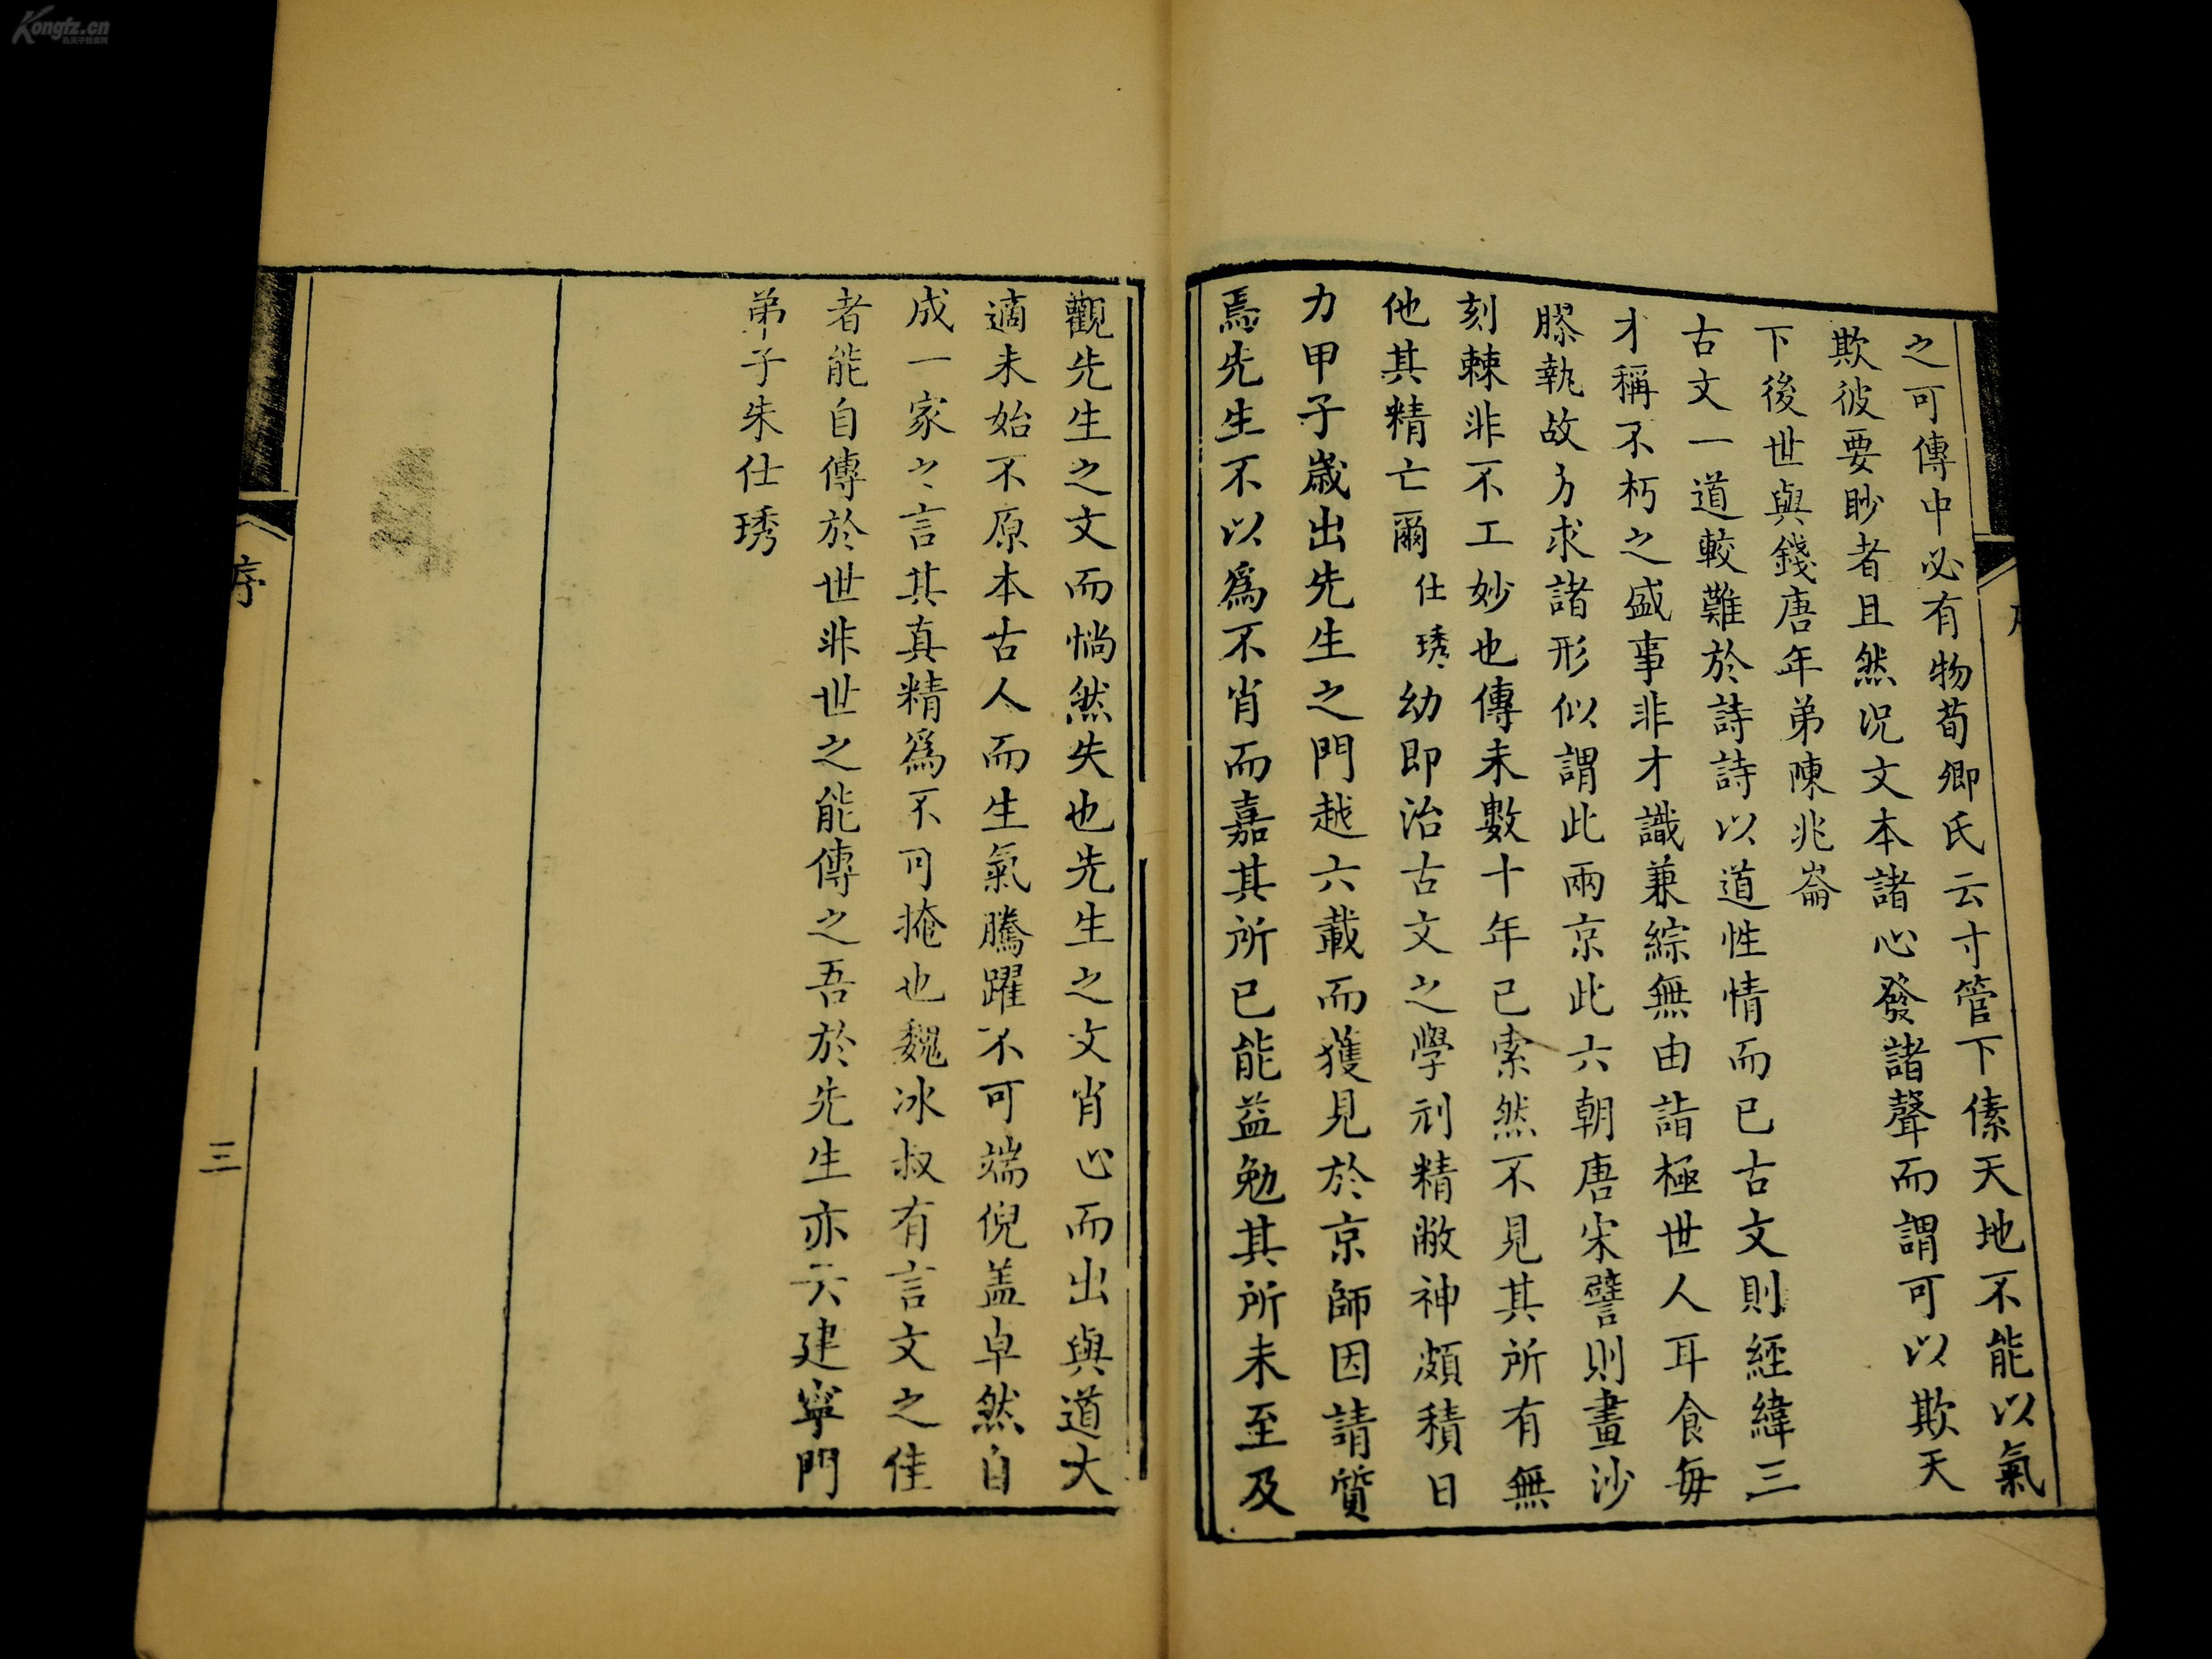 之可傳中必有物荀卿氏云寸管下傃天地不能以氣
欺彼要眇者且然况文本諸心發諸聲而謂可以欺天
下後世與錢唐年弟陳兆崙
古文一道較難於詩詩以道性情而已古文則經緯三
才稱不朽之盛事非才識兼綜無由詣極世人耳食每
膠執故方求諸形似謂此兩京此六朝唐宋譬則畫沙
刻棘非不工妙也傳未數十年已索然不見其所有無
他其精亡爾仕琇幼即治古文之學刓精敝神頗積日
力甲子歲出先生之門越六載而獲見於京師因請質
焉先生不以爲不肖而嘉其所已能益勉其所未至及
觀先生之文而惝然失也先生之文肖心而出與道大
適未始不原本古人而生氣騰躍不可端倪盖卓然自
成一家之言其真精爲不可掩也魏冰叔有言文之佳
者能自傳於世非世之能傳之吾於先生亦云建寧門
弟子朱仕琇
序
三
Kongfz.cn
孔夫子旧书网